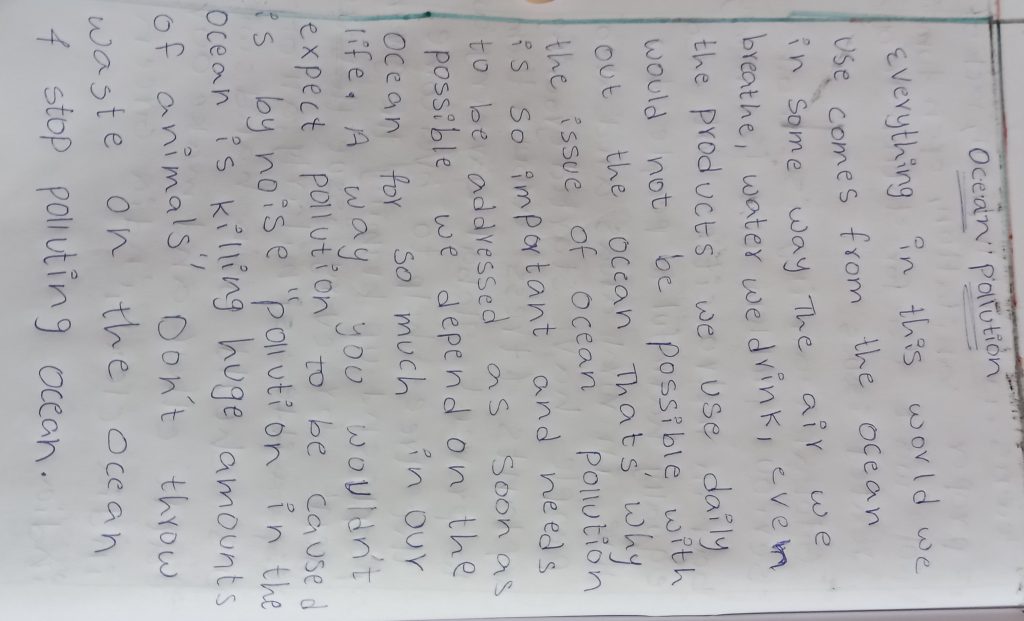 Ocean pollution
everything in this world we
use comes from the ocean
in some way The air we
breathe, water we drink, even
the products we use daily
would not be possible with
out the ocean That's why
the issue of ocean pollution
is so important and needs
to be addressed as soon as
possible we depend on the
ocean for so much in our
life. A way you wouldn't
expect pollution to be caused
is by noise "pollution in the
ocean is killing huge amounts
of animals", Don't throw
waste on the ocean
& stop polluting ocean.